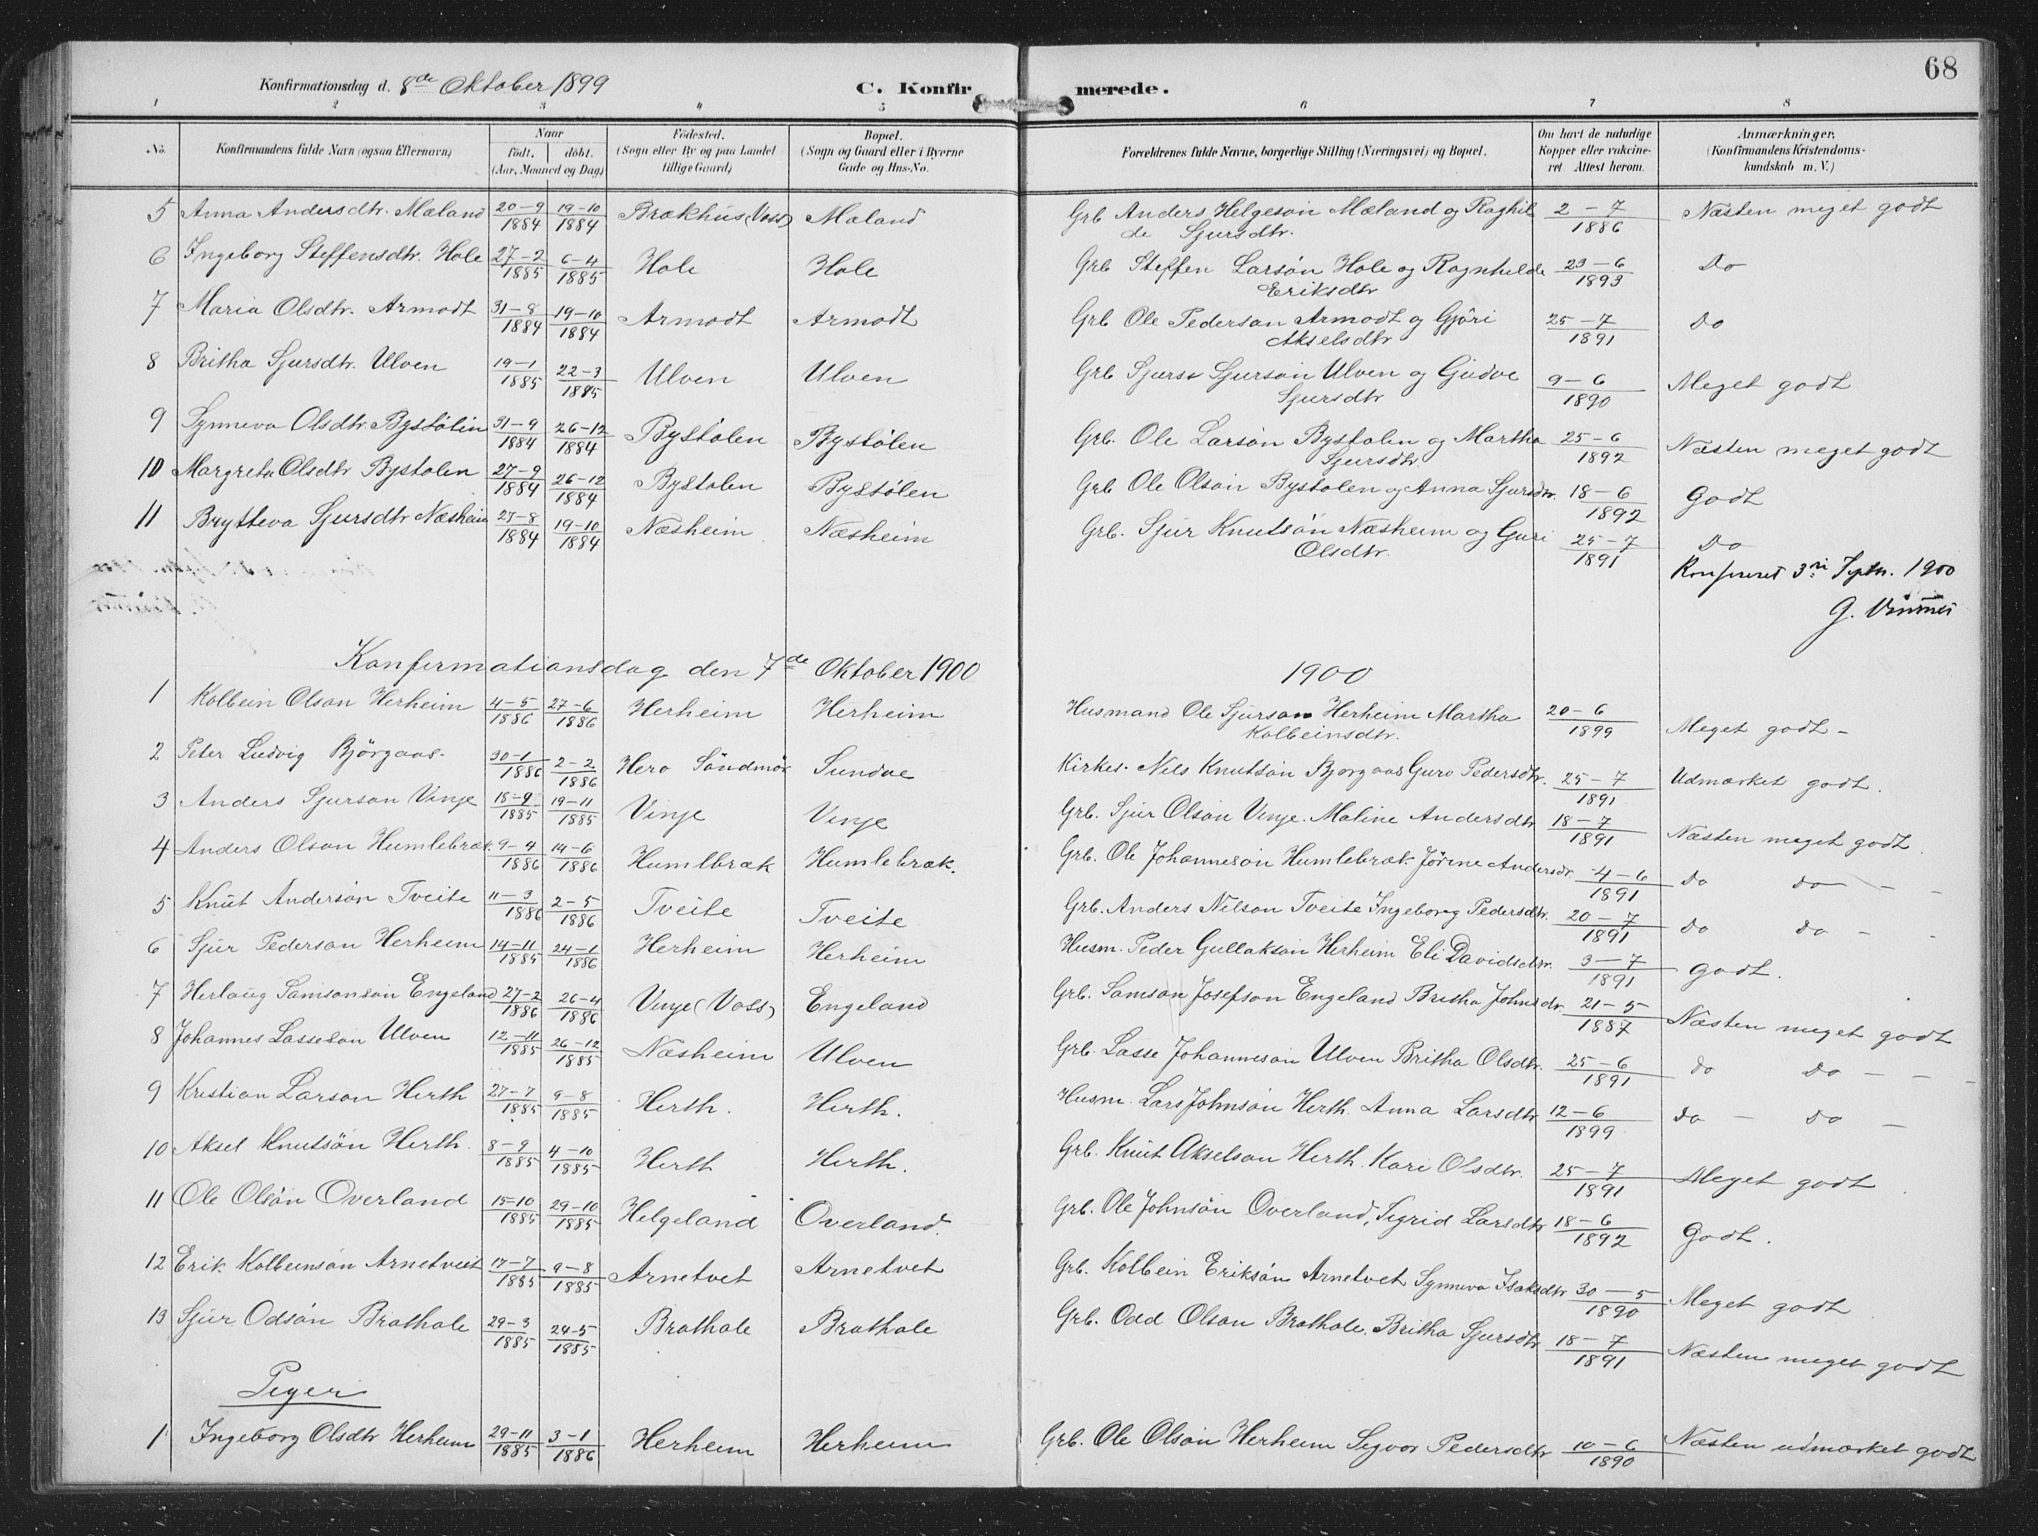 68
Konfirmationsdag d. 8de Oktober 1899 C. Konfirmerede.
1 2 3 4 5 6 7 8
No. Konfirmandens fulde Navn (ogsaa Efternavn) Naar født, døbt. (Aar, Maaned og Dag) Fødested. (Sogn eller By og paa Landet tillige Gaard) Bopæl. (Sogn og Gaard eller i Byerne Gade og Hus-No. Forældrenes fulde Navne, borgerlige Stilling (Næringsvei) og Bopæl. Om havt de naturlige Kopper eller vaccineret. Attest herom. Anmærkninger. (Konfirmandens Kristendomskundskab m. V.)
5 Anna Andersdtr. Mæland 20-9 1884 19-10 1884 Brækhus (Voss) Mæland Grb Anders Helgeson Mæland og Raghilde Sjursdtr. 2-7 1886 Næsten meget godt
6 Ingeborg Steffensdtr. Hole 27-2 1885 6-4 1885 Hole Hole Grb Steffen Larsøn Hole og Ragnhilde Eriksdtr 23-6 1893 Do
7 Maria Olsdtr. Armodt 31-8 1884 19-10 1884 Armodt Armodt Grb Ole Pederson Armodt og Gjøri Akselsdtr 25-7 1891 Do
8 Britha Sjursdtr. Ulven 19-1 1885 22-3 1885 Ulven Ulven Grb Sjurs Sjursøn Ulven og Gudve Sjursdtr 9-6 1890 Meget godt
9 Synneva Olsdtr. Bystølen 31-9 1884 26-12 1884 Bystølen Bystølen Grb. Ole Larsøn Bystølen og Martha Sjursdtr. 25-6 1892 Næsten meget godt
10 Margreta Olsdtr Bystølen 27-9 1884 26-12 1884 Bystølen Bystølen Grb Ole Olsøn Bystølen og Anna Sjursdtr. 18-6 1892 Godt
11 Brytteva Sjursdtr Næsheim 27-8 1884 19-10 1884 Næsheim Næsheim Grb. Sjur Knutsøn Næsheim og Guri Olsdtr. 25-7 1891 Do
3 Septbr. 1900
G.
Konfirmationsdag den 7de Oktober 1900 1900
1 Kolbein Olson Herheim 4-5 1886 27-6 1886 Herheim Herheim Husmand Ole Sjurson Herheim Martha Kolbeinsdtr. 20-6 1899 Meget godt -
2 Peter Ludvig Bjørgaas. 30-1 1886 2-2 1886 Herø Søndmør Sundve Kirkes. Nils Knutsøn Bjørgaas Guro Pedersdtr. 25-7 1891 Udmærket godt.
3 Anders Sjurson Vinje 18-9 1885 19-11 1885 Vinje Vinje Grb. Sjur Olsøn Vinje. Maline Andersdtr 18-7 1891 Næsten meget godt.
4 Anders Olson Humlebræk 9-4 1886 14-6 1886 Humlbræk Humlebræk. Grb. Ole Johanneson Humlebræk. Jørine Andersdtr. 4-6 1891 Do Do - -
5 Knut Anderson Tveite 11-3 1886 2-5 1886 Tveite Tveite Grb. Anders Nilson Tveite Ingeborg Pedersdtr. 20-7 1891 Do Do - -
6 Sjur Pederson Herheim 14-11 1885 24-1 1886 Herheim Herheim Husm. Peder Gullakson Herheim Eli Davidsdtr. 3-7 1891 Godt.
7 Herlaug Samsonson Engeland 27-2 1886 26-4 1886 Vinje (Voss) Engeland Grb. Samson Josefson Engeland Britha Johnsdtr. 21-5 1887 Næsten meget godt
8 Johannes Lasseson Ulven 12-11 1885 26-12 1885 Næsheim Ulven Grb. Lasse Johanneson Ulven Britha Olsdtr. 25-6 1891 Do Do - - -
9 Kristian Larson Herth 27-7 1885 9-8 1885 Herth. Herth. Husm. Lars Johnson Herth. Anna Larsdtr 12-6 1899 Do - Do -
10 Aksel Knutsøn Herth. 8-9 1885 4-10 1885 Herth Herth. Grb. Knut Akselson Herth. Kari Olsdtr. 25-7 1891 Meget godt
11 Ole Olsøn Overland 15-10 1885 29-10 1885 Helgeland Overland. Grb. Ole Johnsøn Overland, Sigrid Larsdtr 18-6 1892 Godt.
12 Erik Kolbeinsøn Arnetveit 17-7 1885 9-8 1885 Arnetvet Arnetvet Grb. Kolbein Eriksøn Arnetvet Synneva Isaksdtr 30-5 1890 Meget godt
13 Sjur Odsøn Brathole 29-3 1885 24-5 1885 Brathole Brathole Grb. Odd Olson Brathole. Britha Sjursdtr 18-7 1891 Næsten meget godt
Piger
1 Ingeborg Olsdtr Herheim 29-11 1885 3-1 1886 Herheim Herheim Grb. Ole Olson Herheim Sigvor Pedersdtr 10-6 1890 Næsten udmærket godt